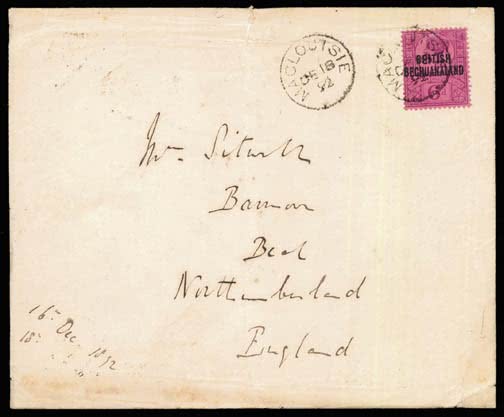 MACLOUTSIE
DE 18
92
BRITISH
BECHUANALAND
Mr. Sitwell
Barmoor
Beal
Northumberland
England
16th Dec. 1892
18th